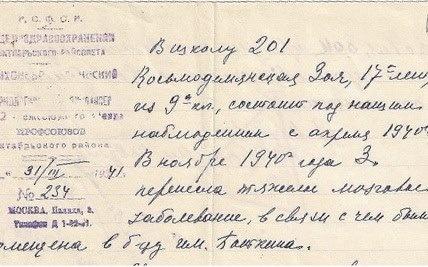 Р.С.Ф.С.Р.
ОТДЕЛ ЗДРАВООХРАНЕНИЯ
ОКТЯБРЬСКОГО РАЙСОВЕТА
ПРОФСОЮЗОВ
Октябрьского района
„31/III 1941.
№ 234
МОСКВА, Палиха, 3.
Телефон Д 1-22-41.
В школу 201
Космодимянская Зоя, 17 лет,
из 9го кл., состоит под нашим
наблюдением с апреля 1940г
В ноябре 1940г года З.
перенесла тяжелое мозговое
заболевание, в связи с чем была
помещена в б-цу им. Боткина.